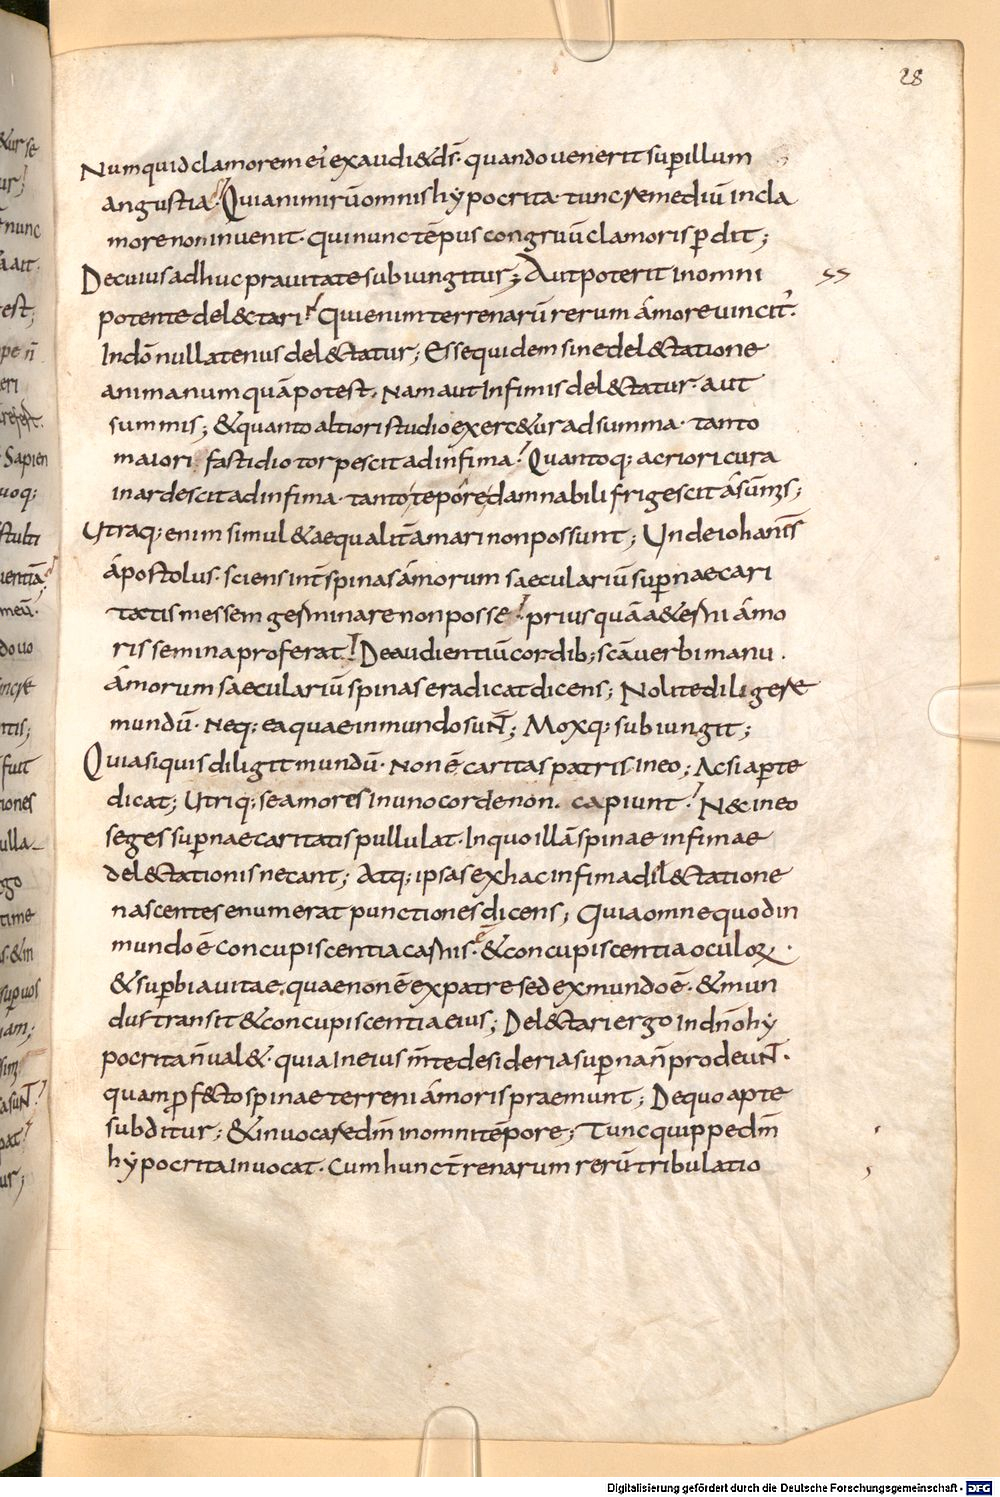 28
Numquid clamorem ei᷒ exaudi& d̅s̅· quando uenerit sup̲ illum
angustia? Quia nimirū omnis hypocrita· tunc remediū in cla
more non inuenit· qui nunc tēpus congruū clamoris p̲dit;
De cuius adhuc prauitate subiungitur; Aut poterit in omni
potente del&ctari? Qui enim terrenarū rerum amore uincit᷒·
In d̅o̅ nullatenus del&tatur; Esse quidem sine del&tatione
anima numquā potest. Nam aut infimis del&tatur· aut
summis; & quanto altiori studio exerc&ur ad summa· tanto
maiori fastidio torpescit ad infima? Quantoq; acriori cura
inardescit ad infima· tanto tepore damnabili frigescit a sūmis;
Utraq; enim simul & aequalit̅ amari non possunt; Unde iohannis
apostolus· sciens int̅ spinas amorum saeculariū sup̲nae cari
tatis messem germinare non posse? prius quā a&erni amo
ris semina proferat? De audientiū cordib; sc̅a uerbi manu.
amorum saeculariū spinas eradicat dicens; Nolite diligere
mundū· neq; ea quae in mundo sunt; Moxq; subiungit;
Quia siquis diligit mundū· non ē caritas patris in eo; Ac si ap̲te
dicat; Utriq; se amores in uno corde non. capiunt? N& in eo
seges sup̲nae caritatis pullulat· In quo illā spinae infimae
del&tationis necant; Atq; ipsas ex hac infima dil&tatione
nascentes enumerat punctiones dicens; Quia omne quod in
mundo ē concupiscentia carnis ē· & concupiscentia oculoꝝ·
& sup̲bia uitae. quae non ē ex patre sed ex mundo ē· & mun
dus transit & concupiscentia eius; Del&tari ergo in dn̅o hy
pocrita n̅ ual&· quia in eius m̅te desideria sup̲na n̅ prodeunt·
quam p̲f&to spinae terreni amoris praemunt; De quo apte
subditur; & inuocare dm̅ in omni tēpore; Tunc quippe dm̅
hypocrita inuocat· Cum hunc t̅renarum rerū tribulatio
Digitalisierung gefördert durch die Deutsche Forschungsgemeinschaft - DFG